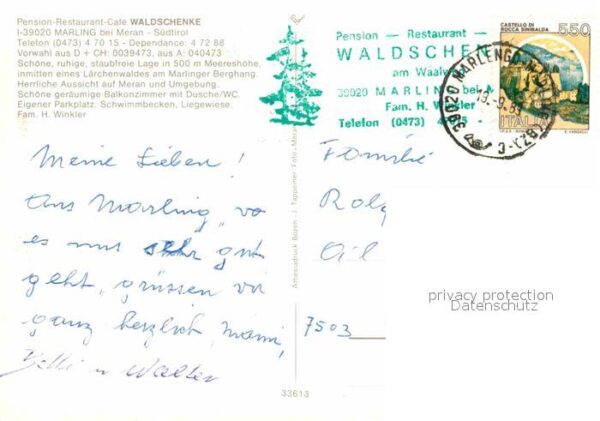 Pension-Restaurant-Cafe WALDSCHENKE
I-39020 MARLING bei Meran - Südtirol
Telefon (0473) 4 70 15 - Dependance: 4 72 88
Vorwahl aus D + CH: 0039473, aus A: 040473
Schöne, ruhige, staubfreie Lage in 500 m Meereshöhe,
inmitten eines Lärchenwaldes am Marlinger Berghang.
Herrliche Aussicht auf Meran und Umgebung.
Schöne geräumige Balkonzimmer mit Dusche/WC.
Eigener Parkplatz, Schwimmbecken, Liegewiese.
Fam. H. Winkler
Meine Lieben!
Aus Marling, wo
es uns sehr gut
geht, grüssen wir
ganz herzlich, Mami,
u Walter
Athesiadruck Bozen - J. Tappeiner Foto
33613
Pension - Restaurant -
WALDSCHEN
am Waalw
39020 MARLIN bei M
Fam. H. Winkler
Telefon (0473) 4
CASTELLO DI
ROCCA SINIBALDA
550
ITALIA
39020 MARLENGO
Familie
7503
privacy protection
Datenschutz